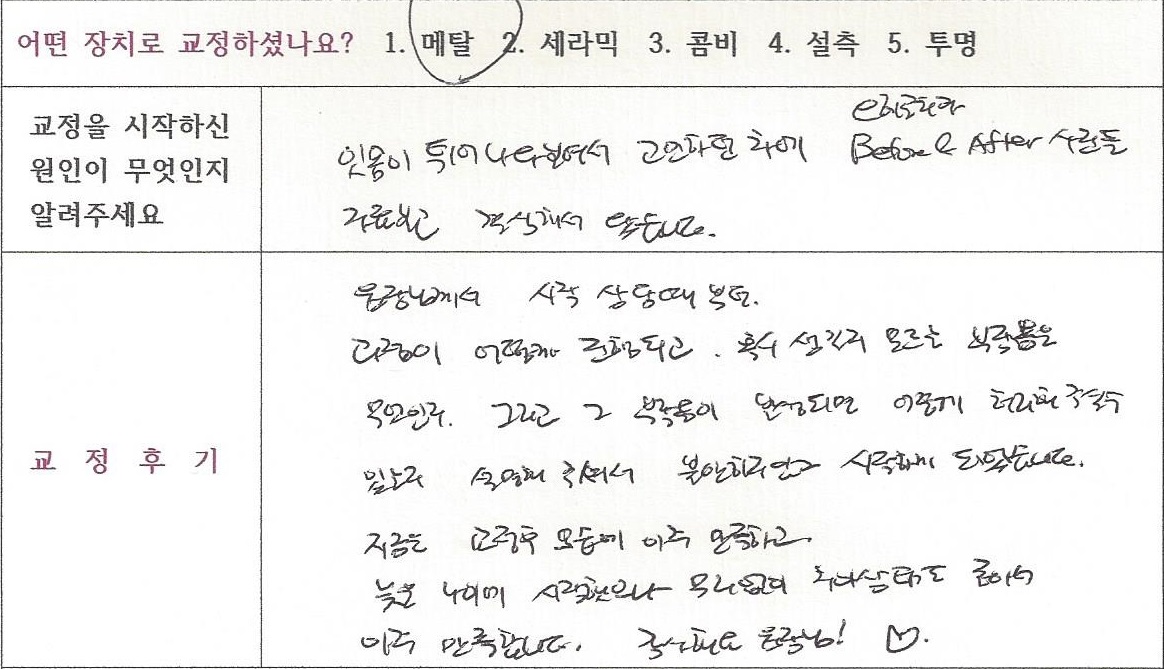 어떤 장치로 교정하셨나요? 1. 메탈 2. 세라믹 3. 콤비 4. 설측 5. 투명
교정을 시작하신
원인이 무엇인지
알려주세요
잇몸이 튀어나와보여서 고민하던 차에
Before & After 사진들
보고 결심해서 왔습니다.
교 정 후 기
원장님께서 시작 상담때 부터.
과정이 어떻게 진행되고. 혹시 생길지 모르는 부작용은
무엇인지. 그리고 그 부작용이 발생되면 어떻게 처리해 주실수
있는지 설명해 주셔서 불안하지않고 시작하게 되었습니다.
지금은 교정후 모습에 아주 만족하고.
늦은 나이에 시작했으나 치아상태도 좋아서
아주 만족합니다. 감사해요 원장님! ♡.